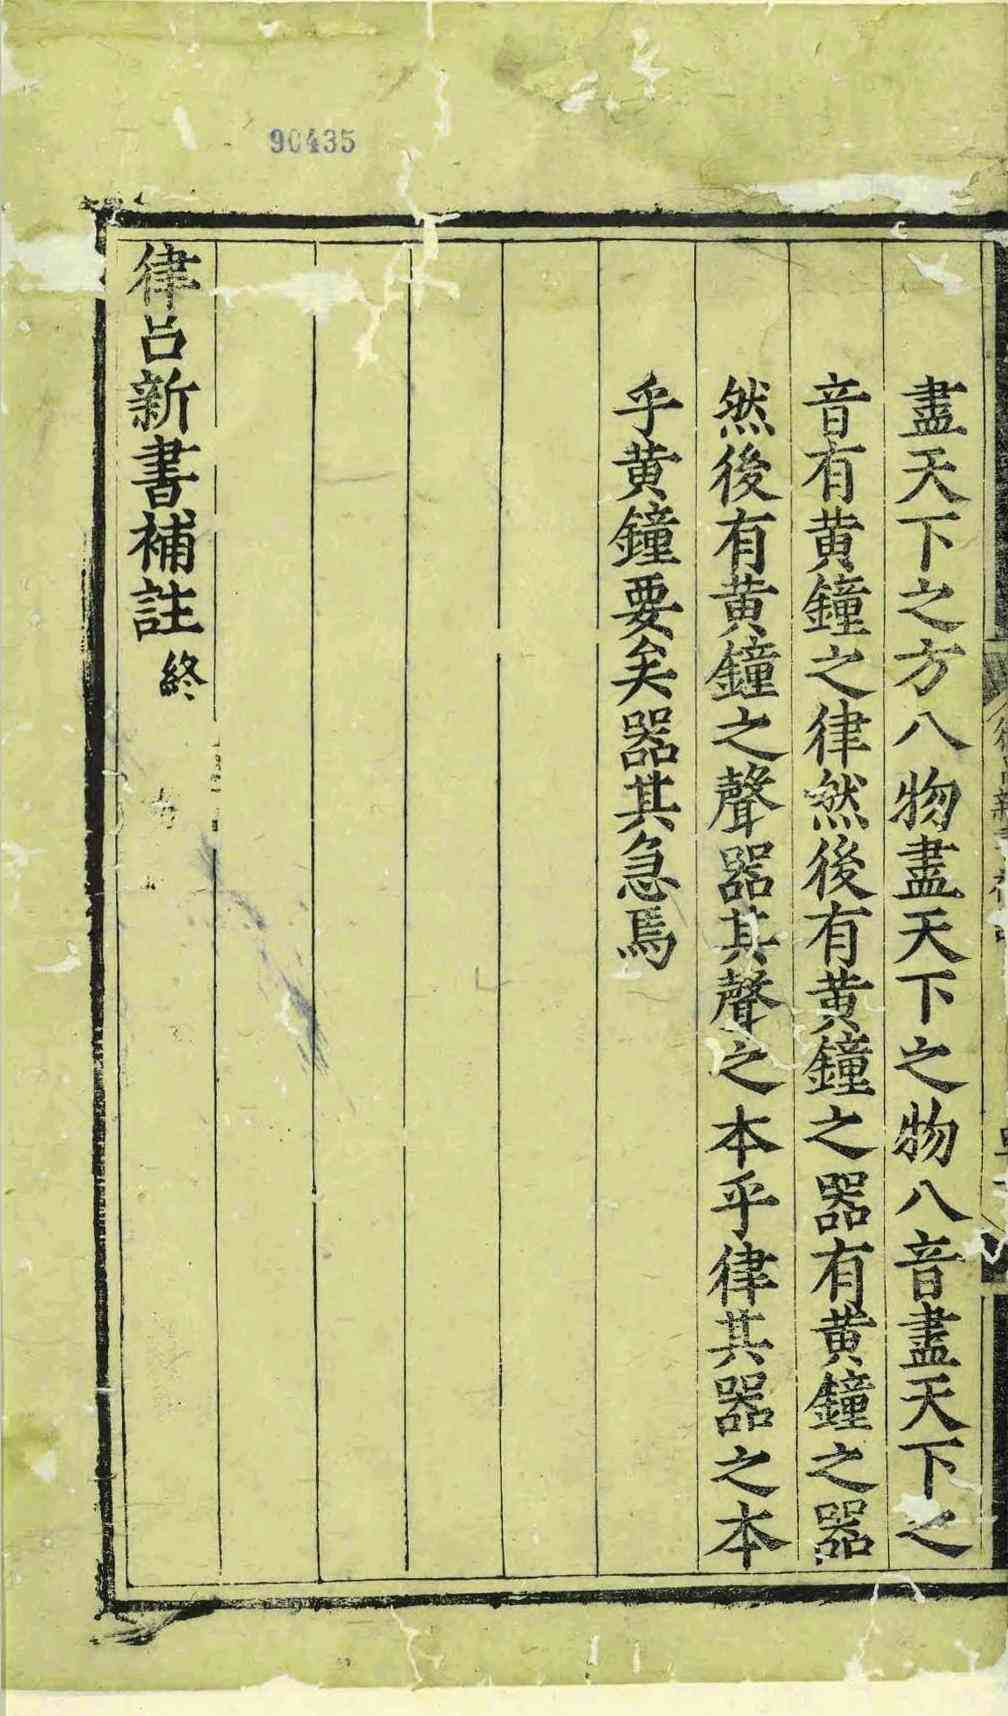 90435
盡天下之方八物盡天下之物八音盡天下之
音有黄鐘之律然後有黄鐘之器有黄鐘之器
然後有黄鐘之聲器其聲之本乎律其器之本
乎黄鐘要矣器其急焉
律吕新書補註終